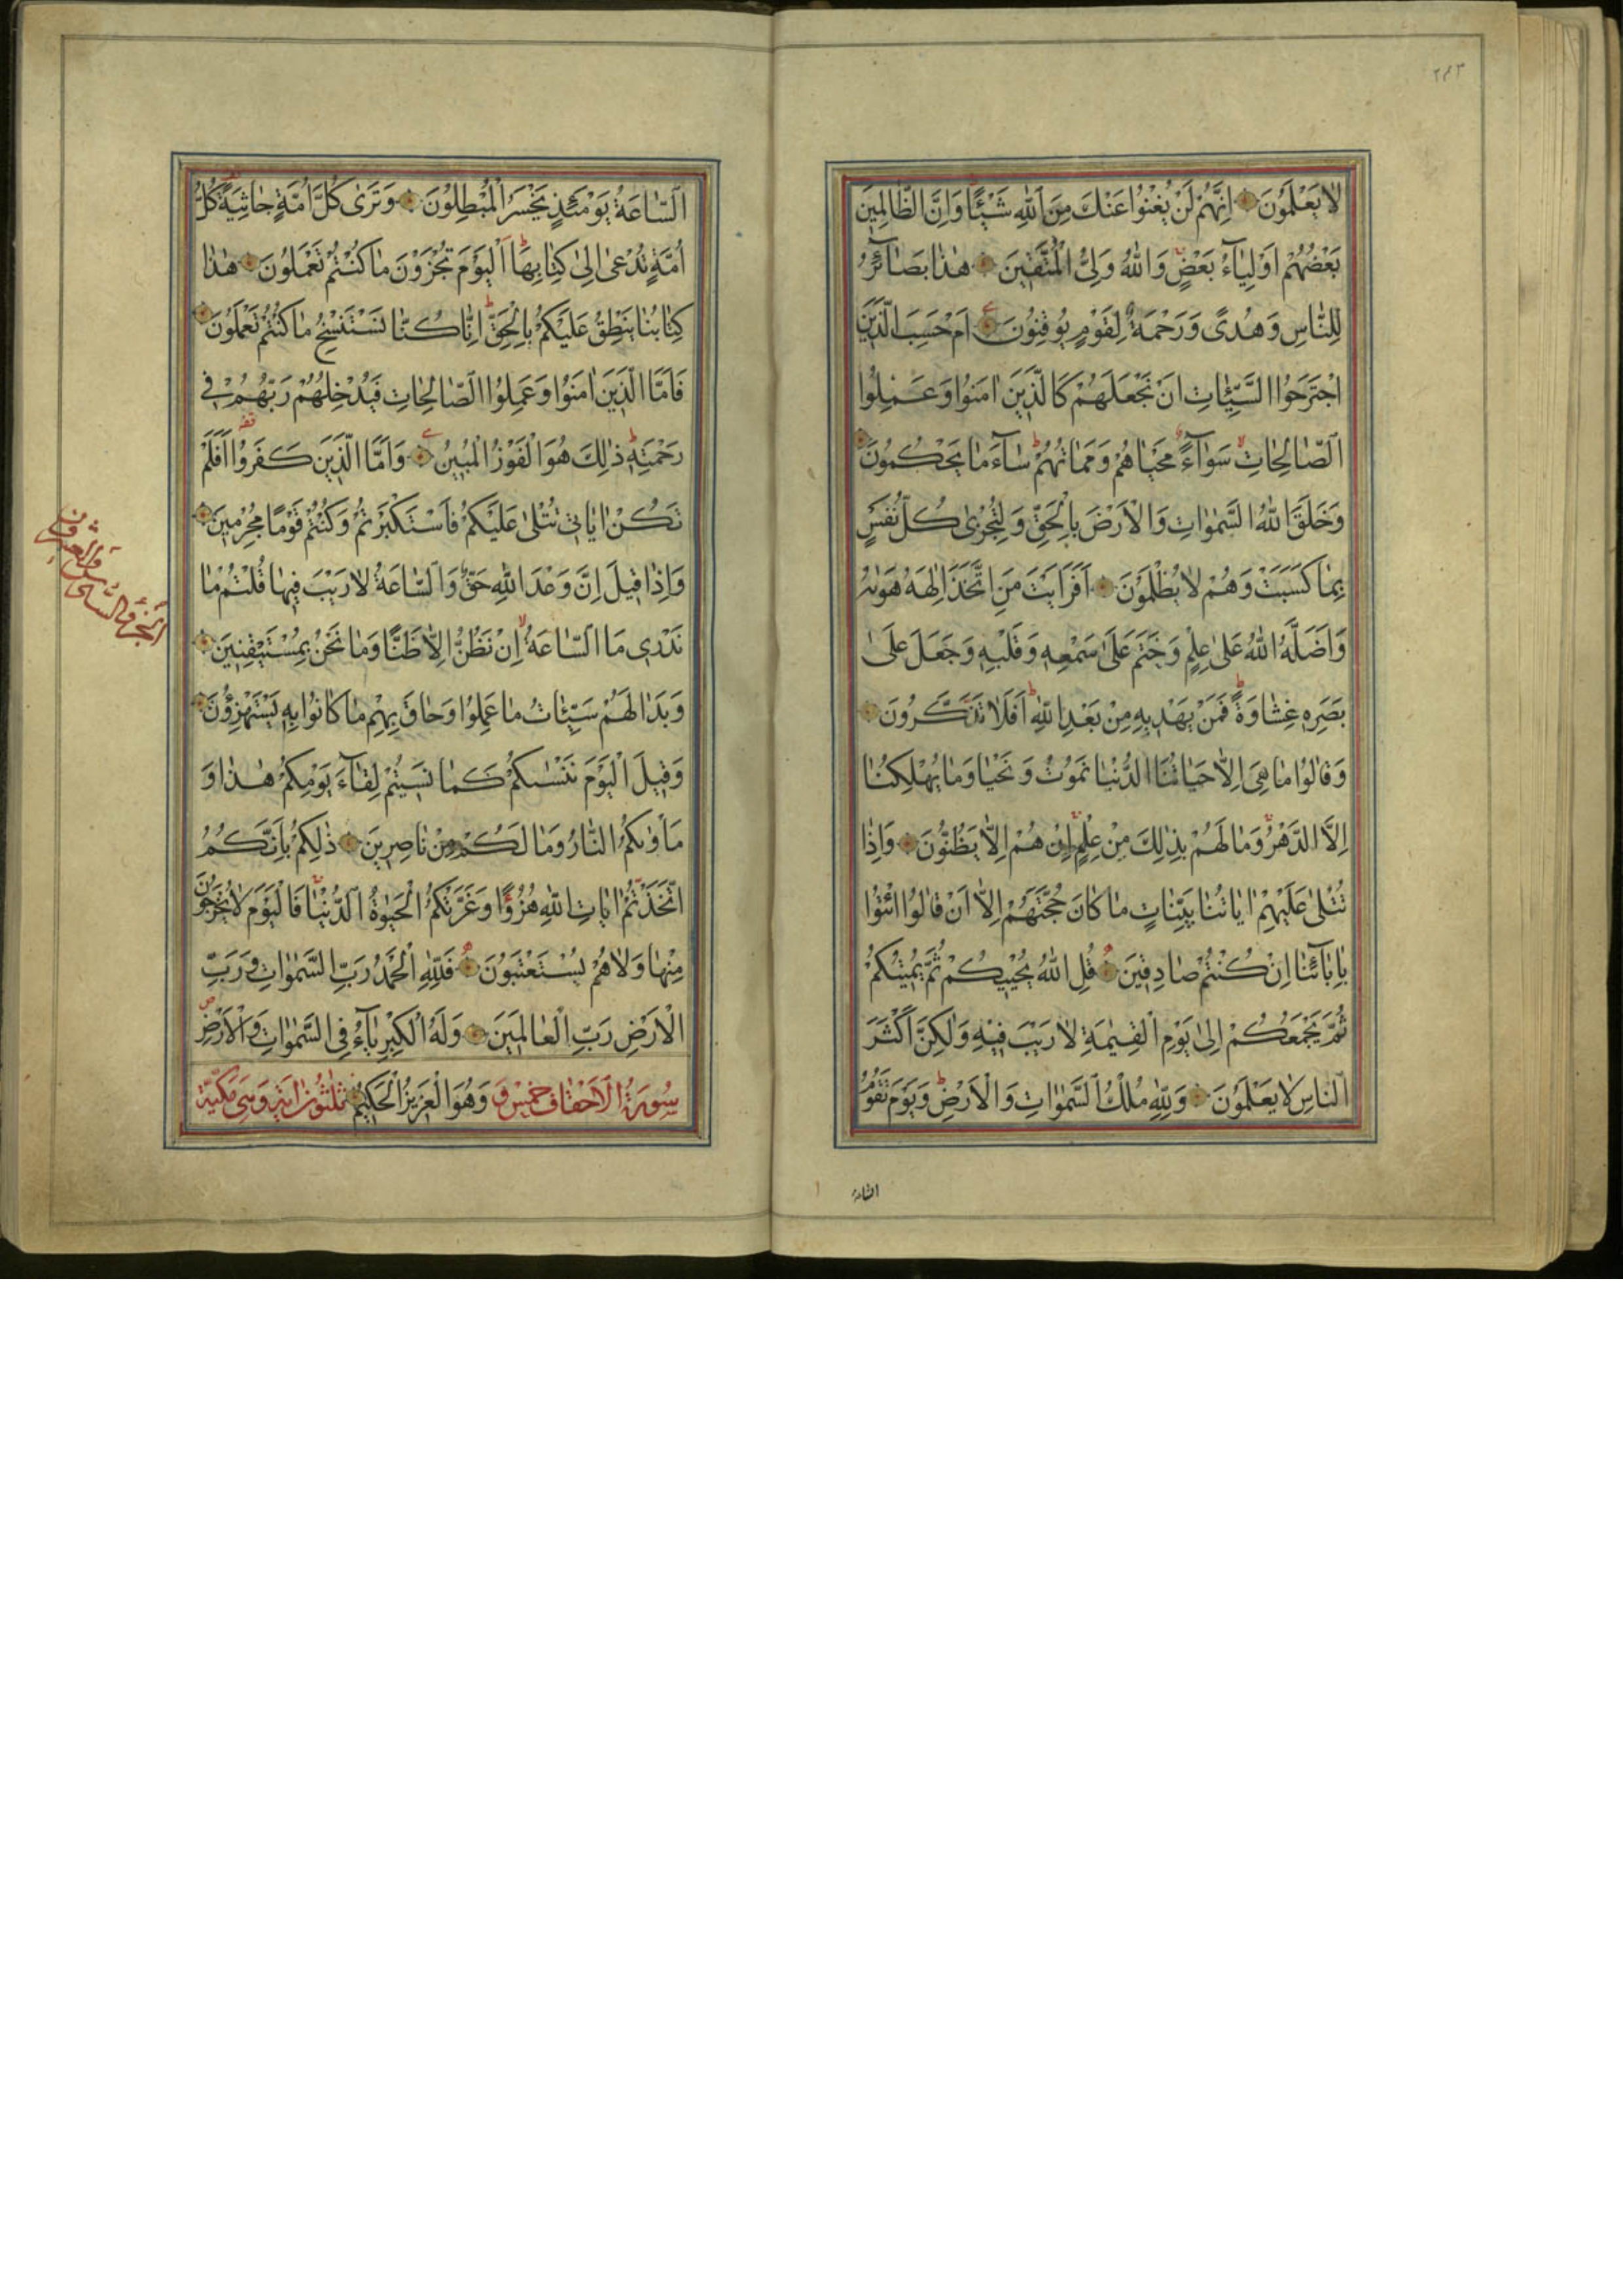 ٢٤٣
لَا يَعْلَمُونَ اِنَّهُمْ لَنْ يُغْنُوا عَنْكَ مِنَ اللّٰهِ شَيْئًا وَاِنَّ الظَّالِمِينَ
بَعْضُهُمْ اَوْلِيَآءُ بَعْضٍ وَاللّٰهُ وَلِىُّ الْمُتَّقِينَ هٰذَا بَصَآئِرُ
لِلنَّاسِ وَهُدًى وَرَحْمَةٌ لِقَوْمٍ يُوقِنُونَ اَمْ حَسِبَ الَّذِينَ
اجْتَرَحُوا السَّيِّئَاتِ اَنْ نَجْعَلَهُمْ كَالَّذِينَ اٰمَنُوا وَعَمِلُوا
الصَّالِحَاتِ سَوَآءً مَحْيَاهُمْ وَمَمَاتُهُمْ سَآءَ مَا يَحْكُمُونَ
وَخَلَقَ اللّٰهُ السَّمٰوَاتِ وَالْاَرْضَ بِالْحَقِّ وَلِتُجْزٰى كُلُّ نَفْسٍ
بِمَا كَسَبَتْ وَهُمْ لَا يُظْلَمُونَ اَفَرَاَيْتَ مَنِ اتَّخَذَ اِلٰهَهُ هَوٰيهُ
وَاَضَلَّهُ اللّٰهُ عَلٰى عِلْمٍ وَخَتَمَ عَلٰى سَمْعِهِ وَقَلْبِهِ وَجَعَلَ عَلٰى
بَصَرِهِ غِشَاوَةً فَمَنْ يَهْدِيهِ مِنْ بَعْدِ اللّٰهِ اَفَلَا تَذَكَّرُونَ
وَقَالُوا مَا هِىَ اِلَّا حَيَاتُنَا الدُّنْيَا نَمُوتُ وَنَحْيَا وَمَا يُهْلِكُنَا
اِلَّا الدَّهْرُ وَمَا لَهُمْ بِذٰلِكَ مِنْ عِلْمٍ اِنْ هُمْ اِلَّا يَظُنُّونَ وَاِذَا
تُتْلٰى عَلَيْهِمْ اٰيَاتُنَا بَيِّنَاتٍ مَا كَانَ حُجَّتَهُمْ اِلَّا اَنْ قَالُوا ائْتُوا
بِاٰبَآئِنَا اِنْ كُنْتُمْ صَادِقِينَ قُلِ اللّٰهُ يُحْيِيكُمْ ثُمَّ يُمِيتُكُمْ
ثُمَّ يَجْمَعُكُمْ اِلٰى يَوْمِ الْقِيٰمَةِ لَا رَيْبَ فِيهِ وَلٰكِنَّ اَكْثَرَ
النَّاسِ لَا يَعْلَمُونَ وَلِلّٰهِ مُلْكُ السَّمٰوَاتِ وَالْاَرْضِ وَيَوْمَ تَقُومُ
السّاعة
السَّاعَةُ يَوْمَئِذٍ يَخْسَرُ الْمُبْطِلُونَ وَتَرٰى كُلَّ اُمَّةٍ جَاثِيَةً كُلُّ
اُمَّةٍ تُدْعٰى اِلٰى كِتَابِهَا اَلْيَوْمَ تُجْزَوْنَ مَا كُنْتُمْ تَعْمَلُونَ هٰذَا
كِتَابُنَا يَنْطِقُ عَلَيْكُمْ بِالْحَقِّ اِنَّا كُنَّا نَسْتَنْسِخُ مَا كُنْتُمْ تَعْمَلُونَ
فَاَمَّا الَّذِينَ اٰمَنُوا وَعَمِلُوا الصَّالِحَاتِ فَيُدْخِلُهُمْ رَبُّهُمْ فِى
رَحْمَتِهِ ذٰلِكَ هُوَ الْفَوْزُ الْمُبِينُ وَاَمَّا الَّذِينَ كَفَرُوا اَفَلَمْ
تَكُنْ اٰيَاتِى تُتْلٰى عَلَيْكُمْ فَاسْتَكْبَرْتُمْ وَكُنْتُمْ قَوْمًا مُجْرِمِينَ
وَاِذَا قِيلَ اِنَّ وَعْدَ اللّٰهِ حَقٌّ وَالسَّاعَةُ لَا رَيْبَ فِيهَا قُلْتُمْ مَا
نَدْرِى مَا السَّاعَةُ اِنْ نَظُنُّ اِلَّا ظَنًّا وَمَا نَحْنُ بِمُسْتَيْقِنِينَ
وَبَدَا لَهُمْ سَيِّئَاتُ مَا عَمِلُوا وَحَاقَ بِهِمْ مَا كَانُوا بِهِ يَسْتَهْزِؤُنَ
وَقِيلَ الْيَوْمَ نَنْسٰيكُمْ كَمَا نَسِيتُمْ لِقَآءَ يَوْمِكُمْ هٰذَا وَ
مَاْوٰيكُمُ النَّارُ وَمَا لَكُمْ مِنْ نَاصِرِينَ ذٰلِكُمْ بِاَنَّكُمُ
اتَّخَذْتُمْ اٰيَاتِ اللّٰهِ هُزُوًا وَغَرَّتْكُمُ الْحَيٰوةُ الدُّنْيَا فَالْيَوْمَ لَا يُخْرَجُونَ
مِنْهَا وَلَا هُمْ يُسْتَعْتَبُونَ فَلِلّٰهِ الْحَمْدُ رَبِّ السَّمٰوَاتِ وَرَبِّ
الْاَرْضِ رَبِّ الْعَالَمِينَ وَلَهُ الْكِبْرِيَآءُ فِى السَّمٰوَاتِ وَالْاَرْضِ
سُورَةُ الْاَحْقَافِ خَمْسٌ وَ وَهُوَ الْعَزِيزُ الْحَكِيمُ ثَلٰثُونَ اٰيَةً وَهِىَ مَكِّيَّةٌ
اَلْجُزْءُ السَّادِسُ وَالْعِشْرُونَ